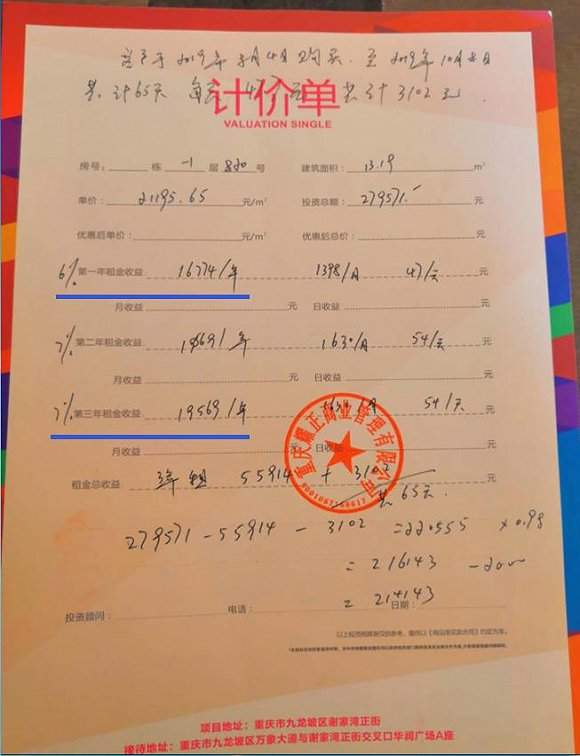 于2019年8月4日购买.至2019年10月8日
共计65天 每天47.7元 共计3102元.
计价单
VALUATION SINGLE
房号: 栋 -1 层 820 号 建筑面积: 13.19 m²
单价: 21195.65 元/m² 投资总额: 279571.- 元
优惠后单价: 元/m² 优惠后总价: 元
6% 第一年租金收益 16774/年 1398/月 47/天 元
月收益 元 日收益 元
7% 第二年租金收益 19569/年 1630/月 54/天 元
月收益 元 日收益 元
7% 第三年租金收益 19569/年 1630/月 54/天 元
月收益 元 日收益 元
租金总收益 3年租 55914 + 3102
共65天.
279571 - 55914 - 3102 = 220555 x 0.98
= 216143 - 2000
= 214143
投资顾问: 电话: 日期:
以上投资概算仅供参考，最终以《商品房买卖合同》约定为准。
重庆耀正商业管理有限公司
项目地址：重庆市九龙坡区谢家湾正街
接待地址：重庆市九龙坡区万象大道与谢家湾正街交叉口华润广场A座